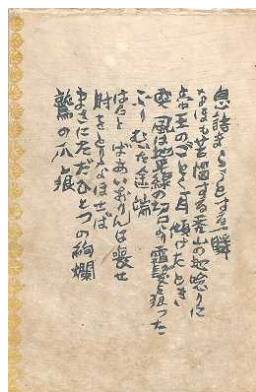 息詰まらうとする一瞬
なほも苦悩する火山の地唸りに
帝王のごとく耳傾けたとき
突風は地平線の切口から霜髪を狙つた
ふりむいた途端
はたと ばあいおりんは喪せ
肘をとりなほせば
まさにただひとつの絢爛
鷲の爪痕